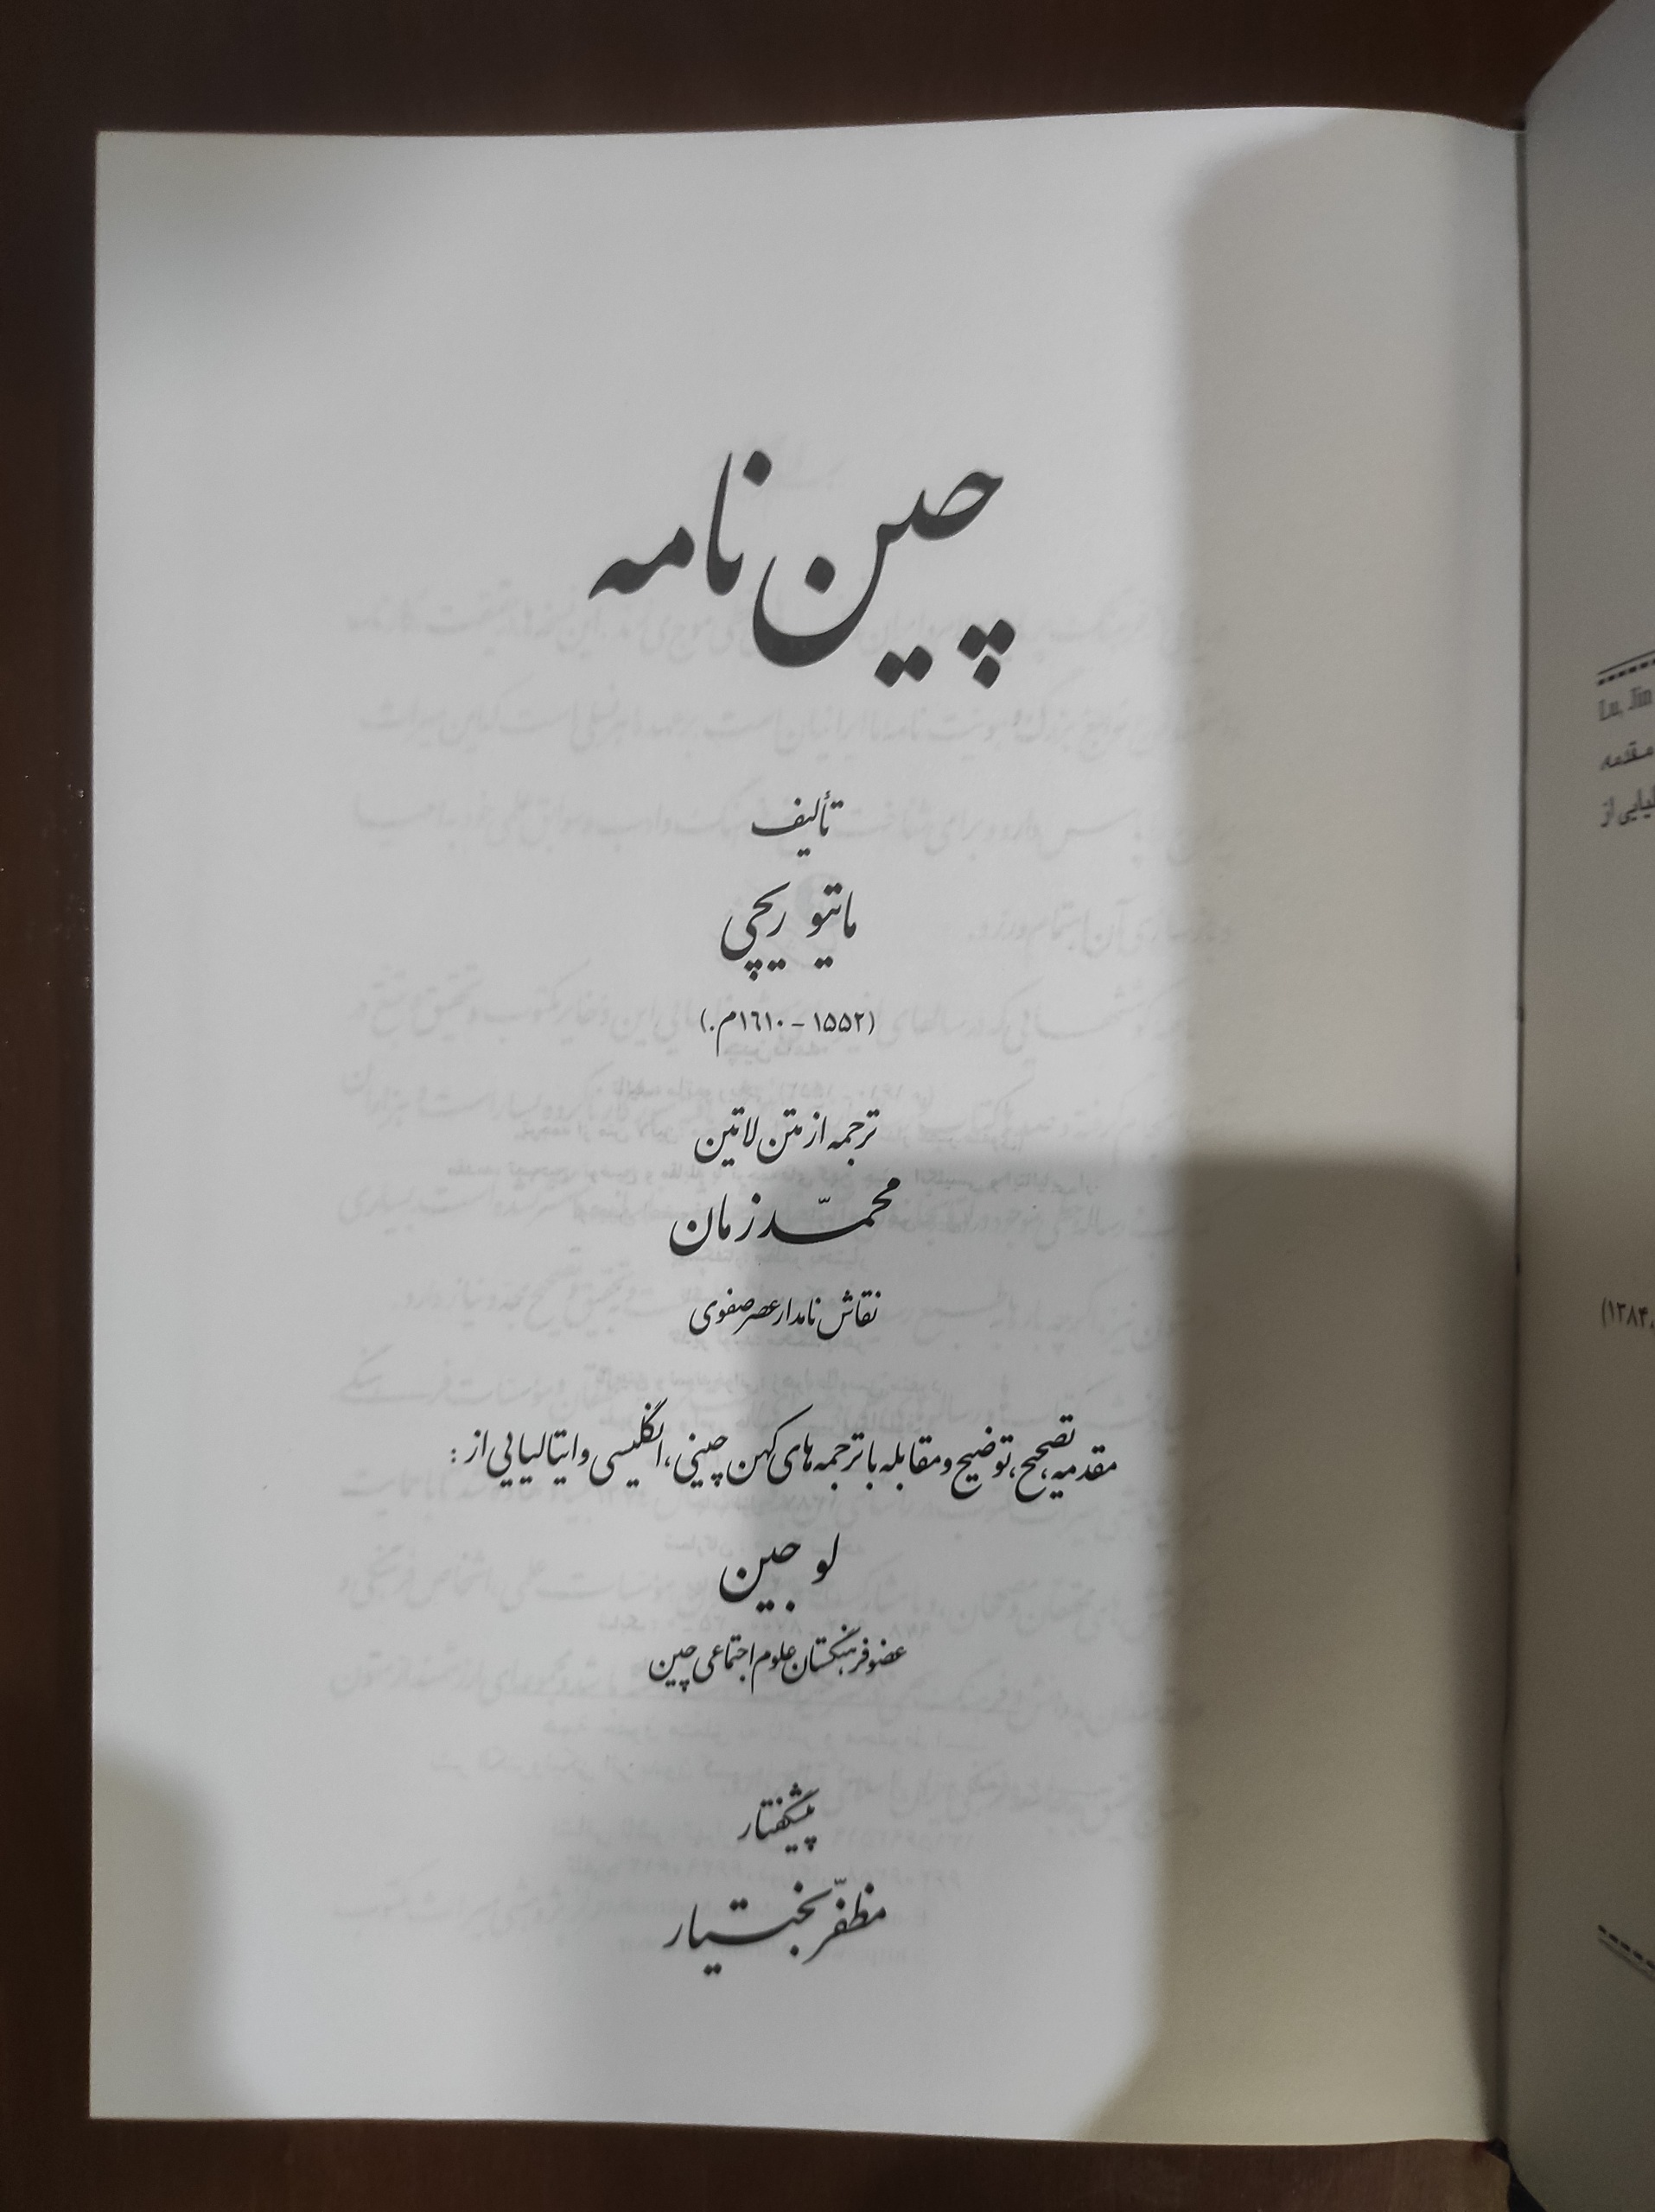 چین نامه
تألیف
ماتیو ریچی
(۱۵۵۲ - ۱٦۱۰م.)
ترجمه از متن لاتین
محمّد زمان
نقاش نامدار عصر صفوی
مقدمه، تصحیح، توضیح و مقابله با ترجمه های کهن چینی، انگلیسی و ایتالیایی از :
لو جین
عضو فرهنگستان علوم اجتماعی چین
پیشگفتار
مظفّر بختیار
Lu, Jin
مقدمه
از
۱۳۸۴)